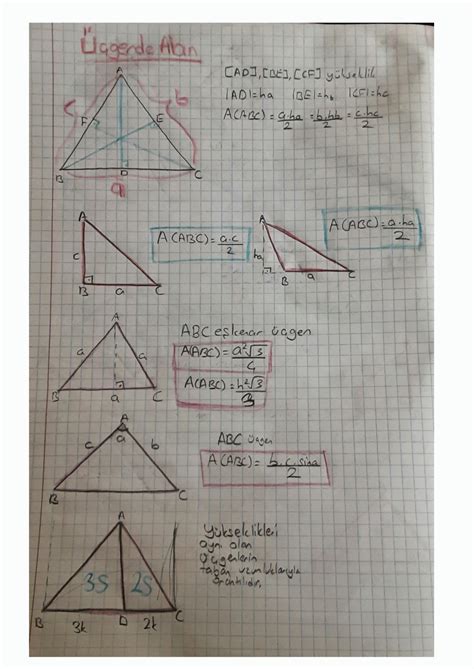 Üçgende Alan
[AD], [BE], [CF] yükseklik
|AD|=ha |BE|=hb |CF|=hc
A(ABC)=a.ha/2 = b.hb/2 = c.hc/2
A
c b
F E
B D C
a
A
c
B a C
A(ABC)=a.c/2
A
ha
B a C
A(ABC)=a.ha/2
A
a a
B a C
ABC eşkenar üçgen
A(ABC)=a²√3/4
A(ABC)=h²√3/3
A
c a b
B C
ABC üçgen
A(ABC)=b.c.sina/2
A
3S 2S
B D C
3k 2k
Yükseklikleri
aynı olan
üçgenlerin
taban uzunluklarıyla
orantılıdır.